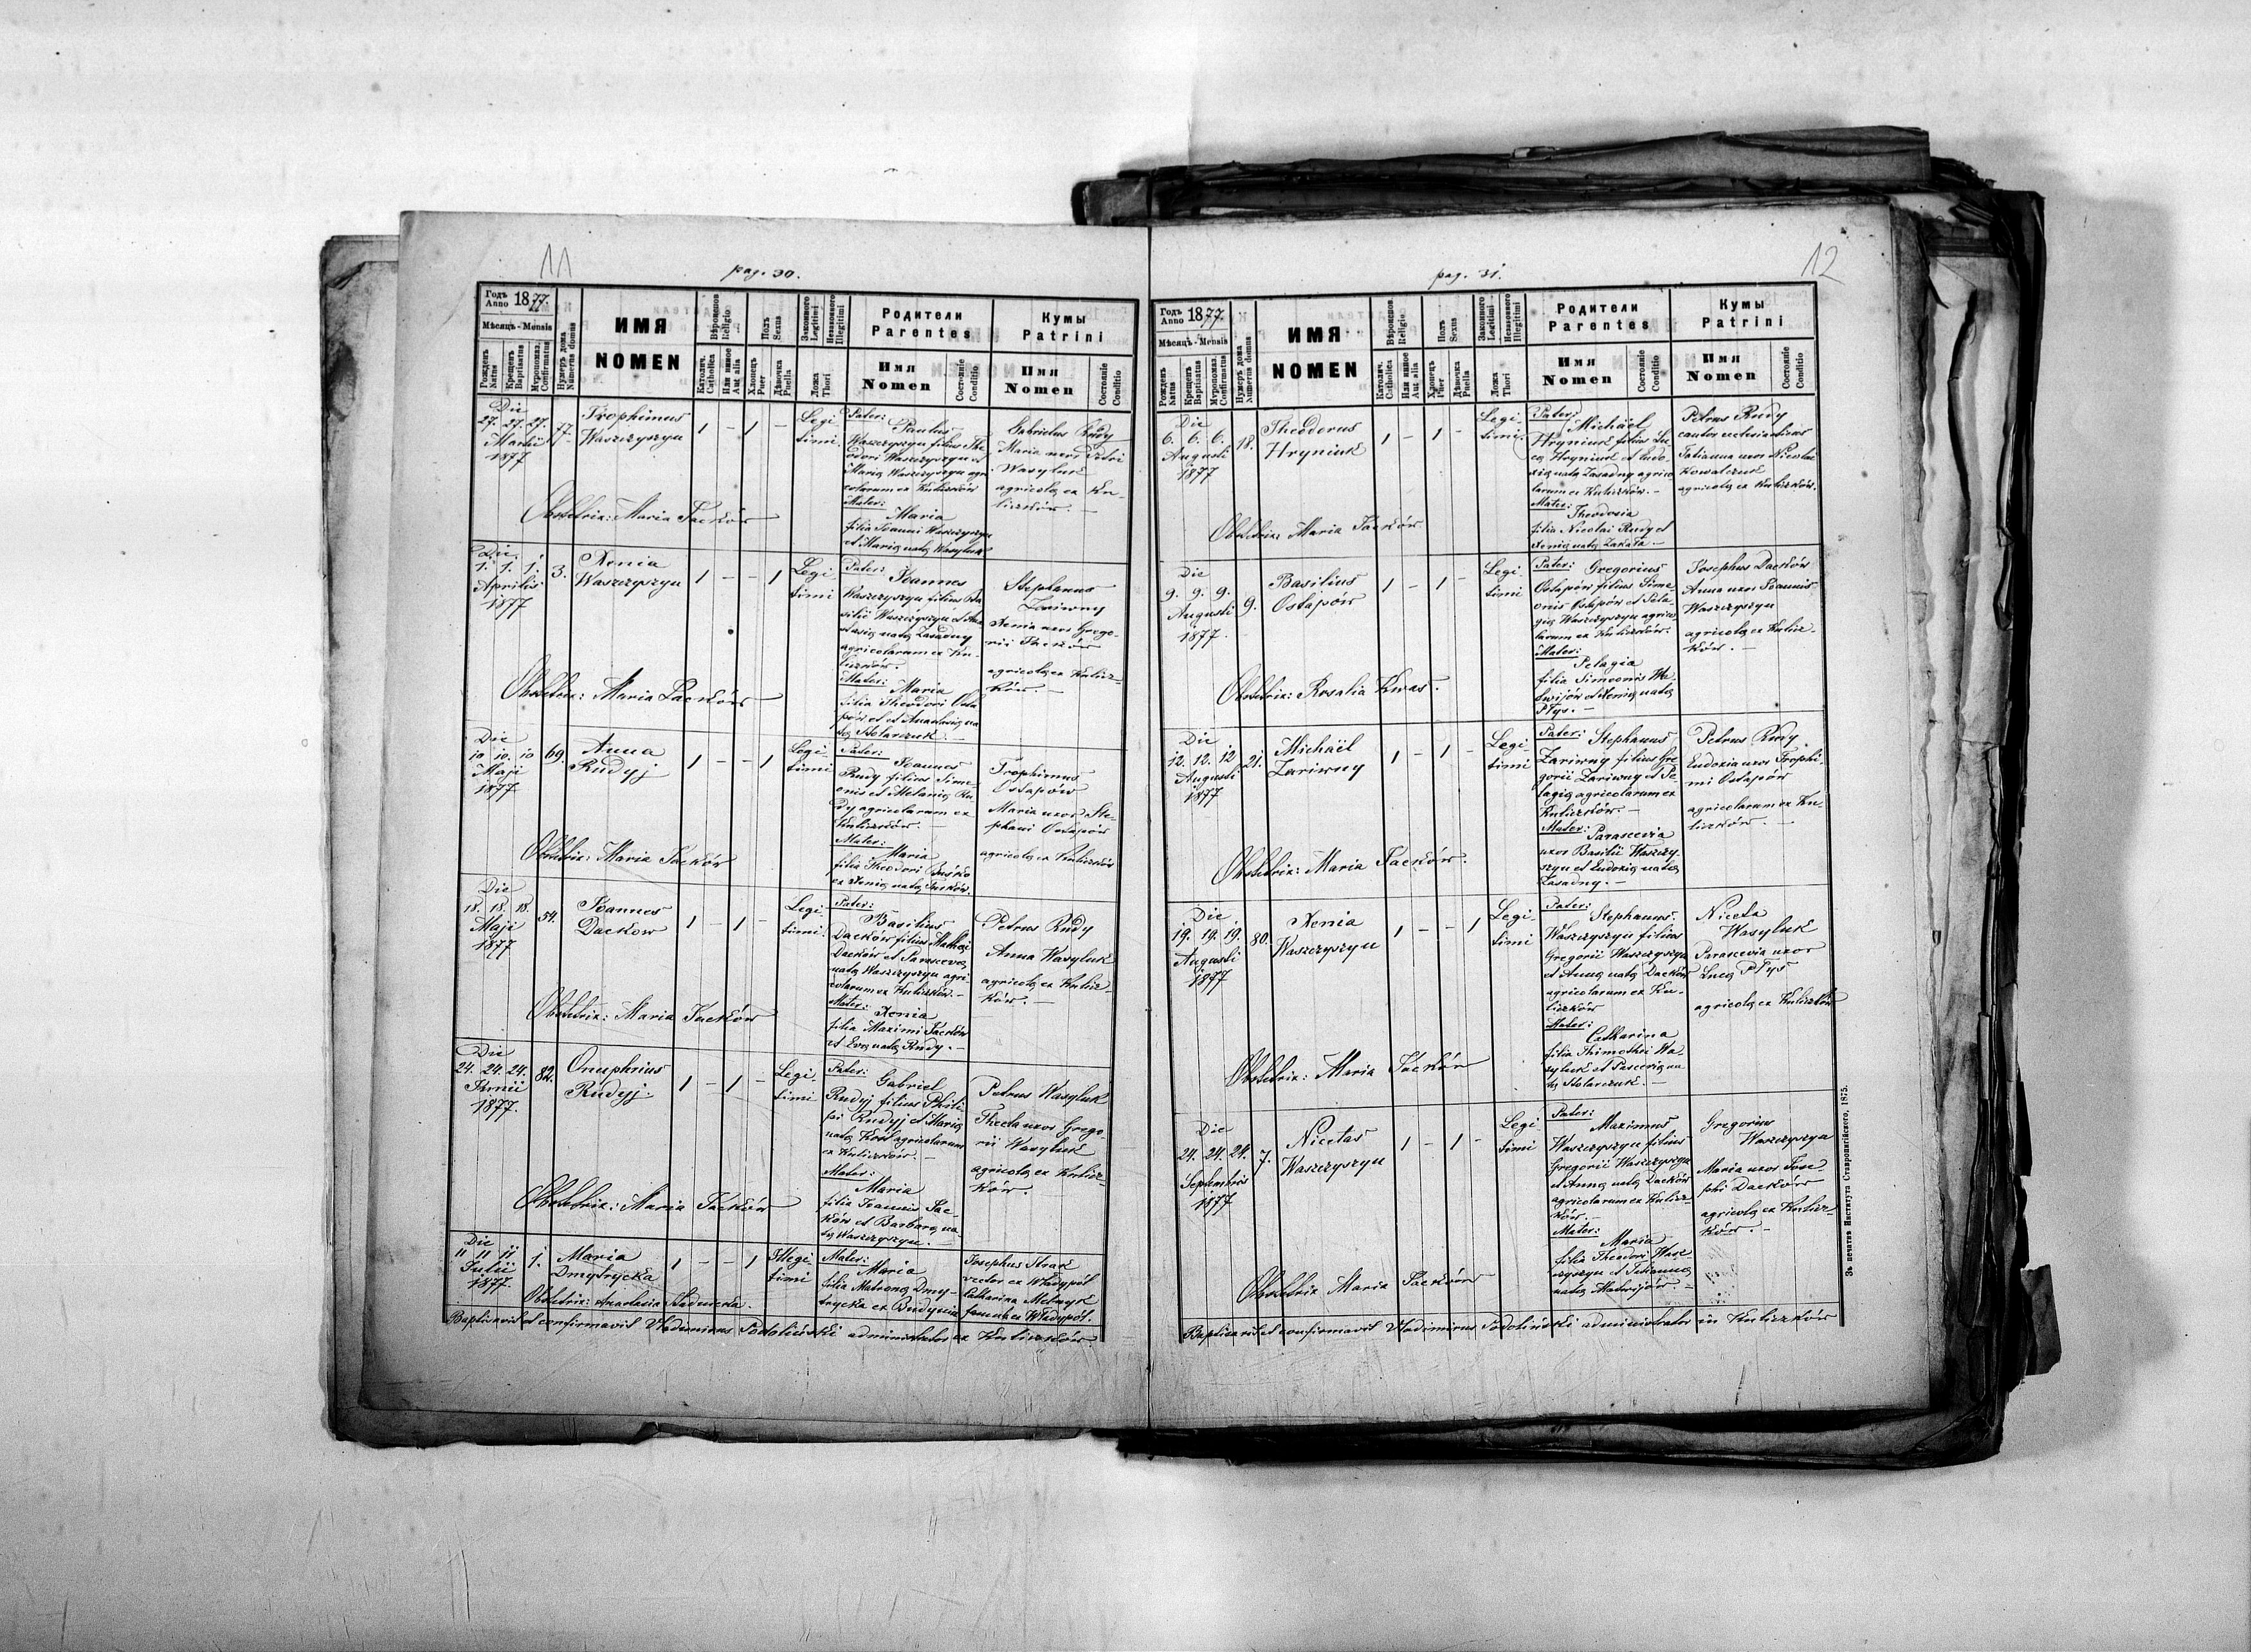 11
pag. 30.
Годъ Anno 1877.
Мѣсяцъ - Mensis
Рожденъ Natus
Крещенъ Baptisatus
Мѵропомаз. Confirmatus
Нумеръ дома Numerus domus
ИМЯ
NOMEN
Вѣроисков Religio
Католич. Catholica
Или инное Aut alia
Полъ Sexus
Хлопецъ Puer
Дѣвочка Puella
Законного Legitimi
Незаконного Illegitimi
Ложа Thori
Родители
Parentes
Имя
Nomen
Состояніе Conditio
Кумы
Patrini
Имя
Nomen
Состояніе Conditio
Die
27. 27. 27.
Martii
1877
77.
Trophimus
Waszczyszyn
1 - 1 -
Legi
timi.
Pater:
Paulus
Waszczyszyn filius The
odori Waszczyszyn et
Maria Waszczyszyn agri
colarum ex Kuliczków
Mater:
Maria
filia Joanni Waszczyszyn
et Maria nata Wasyluk
Gabrielus Rudy
Maria uxor Petri
Wasyluk
agricola ex Ku-
liczków. —
Obstetrix: Maria Jacków
Die
1. 1. 1.
Aprilis
1877
3.
Xenia
Waszczyszyn
1 - - 1
Legi
timi
Pater: Joannes
Waszczyszyn filius Ba
silii Waszczyszyn et Ana
stasia nata Zasadny
agricolarum ex Ku-
liczków.
Mater: Maria
filia Theodori Osta
pów et Anastasia na
ta Stolarczuk. —
Stephanus
Zariwny
Xenia uxor Grego-
rii Jacków
agricola ex Kulicz-
ków. —
Obstetrix: Maria Jacków
Die
10. 10. 10
Maji
1877
69.
Anna
Rudyj
1 - - 1
Legi-
timi
Pater:
Joannes
Rudy filius Sime
onis et Melania Ru
dy agricolarum ex
Kuliczków. —
Mater:
Maria
filia Theodori Buśko
ex Xenia nata Jacków.
Trophimus
Ostapów
Maria uxor Ste-
phani Ostapów
agricola ex Kuliczków
Obstetrix: Maria Jacków
Die
18. 18. 18.
Maji
1877
54.
Joannes
Dackow
1 - 1 -
Legi-
timi.
Pater:
Basilius
Dacków filius Mathei
Dacków et Parascevea
nata Waszczyszyn agri-
colarum ex Kuliczków. —
Mater: Xenia
filia Maximi Jacków
et Eva nata Rudy. —
Petrus Rudy
Anna Wasyluk
agricola ex Kulicz-
ków. —
Obstetrix: Maria Jacków
Die
24. 24. 24.
Junii
1877.
82.
Onuphrius
Rudyj.
1 - 1 -
Legi-
timi
Pater: Gabriel
Rudyj filius Phili
pi Rudyj et Maria
nata Kost agricolarum
ex Kuliczków. —
Mater:
Maria
filia Joannis Jac-
ków et Barbara na-
ta Waszczyszyn. —
Petrus Wasyluk
Thecla uxor Grego-
rii Wasyluk
agricola ex Kulicz-
ków. —
Obstetrix: Maria Jacków
Die
11 11 11
Julii
1877.
1.
Maria
Dmytrycka
1 - - 1
Illegi-
timi
Mater:
Maria
filia Matrona Dmy-
trycka ex Budynin
Josephus Strak
vector ex Władypól
Catharina Melnyk
famula ex Władypól.
Obstetrix: Anastasia Stadnicka.
Baptisavit et confirmavit Wladimirus Podoliński administrator ex Kuliczków.
12
pag. 31.
Годъ Anno 1877.
Мѣсяцъ - Mensis
Рожденъ Natus
Крещенъ Baptisatus
Мѵропомаз. Confirmatus
Нумеръ дома Numerus domus
ИМЯ
NOMEN
Вѣроисков Religio
Католич. Catholica
Или инное Aut alia
Полъ Sexus
Хлопецъ Puer
Дѣвочка Puella
Законного Legitimi
Незаконного Illegitimi
Ложа Thori
Родители
Parentes
Имя
Nomen
Состояніе Conditio
Кумы
Patrini
Имя
Nomen
Состояніе Conditio
Die
6. 6. 6.
Augusti
1877
18.
Theodorus
Hryniuk
1 - 1 -
Legi-
timi.
Pater:
Michaël
Hryniuk filius Lu-
ca Hryniuk et Eudo-
xia nata Zasadny agrico
larum ex Kuliczków. —
Mater: Theodosia
filia Nicolai Rudy et
Xenia nata Zakała. —
Petrus Rudy
cantor ecclesiasticus
Tatianna uxor Nicolai
Kowalczuk
agricola ex Kuliczków.
Obstetrix: Maria Jacków
Die
9. 9. 9.
Augusti
1877.
9.
Basilius
Ostapów
1 - 1 -
Legi-
timi
Pater: Gregorius
Ostapów filius Sime-
onis Ostapów et Pela-
gia Waszczyszyn agrico
larum ex Kuliczków.
Mater:
Pelagia
filia Simeonis Ma-
twijów et Xenia nata
Ptys. —
Josephus Dacków
Anna uxor Joannis
Waszczyszyn
agricola ex Kulicz-
ków. —
Obstetrix: Rosalia Kwas.
Die
12. 12. 12
Augusti
1877
21.
Michaël
Zariwny
1 - 1 -
Legi-
timi
Pater: Stephanus
Zariwny filius Gre
gorii Zariwny et Pe-
lagia agricolarum ex
Kuliczków. —
Mater: Parascevia
uxor Basilii Waszczy-
szyn et Eudoxia nata
Zasadny. —
Petrus Rudy
Eudoxia uxor Trophi-
mi Ostapów
agricolarum ex Ku-
liczków. —
Obstetrix: Maria Jacków.
Die
19. 19. 19.
Augusti
1877
80.
Xenia
Waszczyszyn
1 - - 1
Legi-
timi
Pater:
Stephanus
Waszczyszyn filius
Gregorii Waszczyszyn
et Anna nata Dacków
agricolarum ex Ku-
liczków
Mater:
Catharina
filia Thimothei Wa-
syluk et Pascevia na
ta Stolarczuk. —
Niceta
Wasyluk
Parascevia uxor
Luca Ptys
agricola ex Kuliczków
Obstetrix: Maria Jacków
Die
24. 24. 24.
Septembris
1877
7.
Nicetas
Waszczyszyn
1 - 1 -
Legi-
timi
Pater:
Maximus
Waszczyszyn filius
Gregorii Waszczyszyn
et Anna nata Dacków
agricolarum ex Kulicz-
ków.
Mater:
Maria
filia Theodori Wasz-
czyszyn et Tatianna
nata Matwijów. —
Gregorius
Waszczyszyn
Maria uxor Jose-
phi Dacków
agricola ex Kulicz-
ków. —
Obstetrix Maria Jacków
Baptisavit et confirmavit Wladimirus Podoliński administrator in Kuliczków
Зъ печатнѣ Института Ставропигійского, 1875.